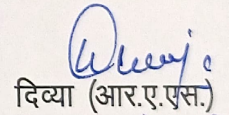 दिव्या (आर.ए.एस.)